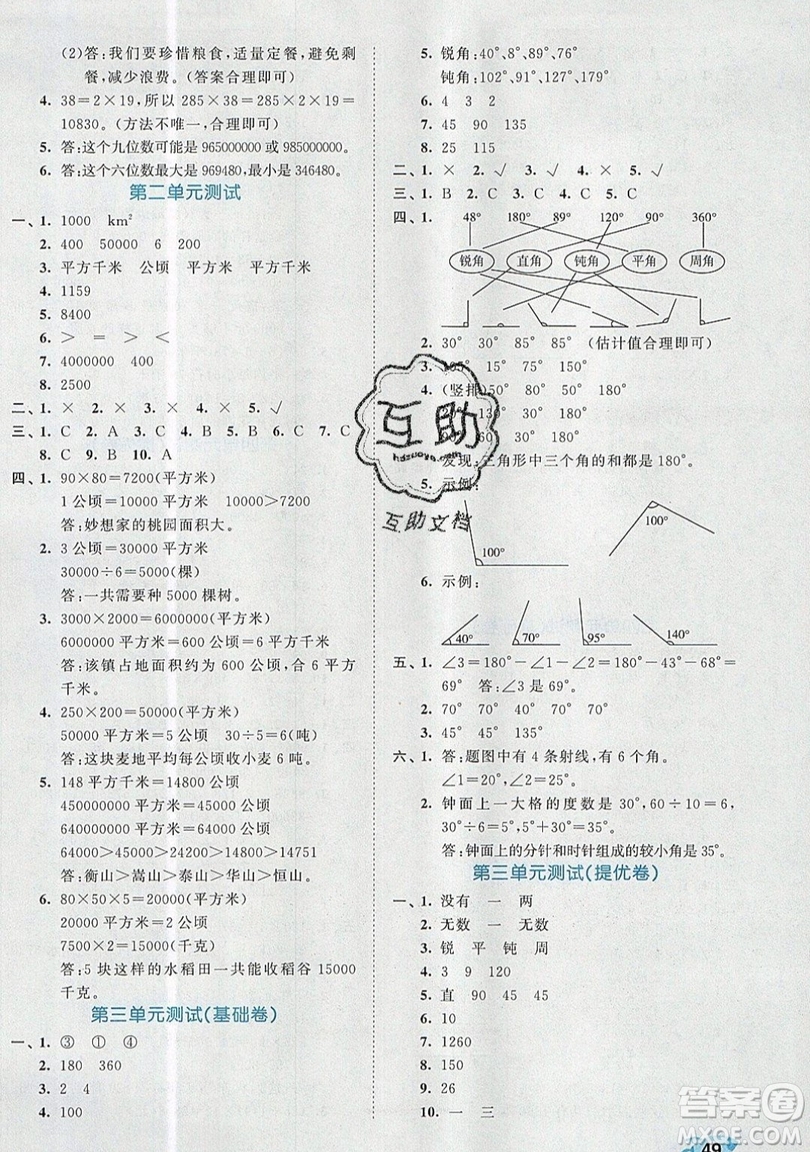 (2)答:我们要珍惜粮食,适量定餐,避免剩
餐,减少浪费。(答案合理即可)
4. 38=2×19,所以 285×38=285×2×19=
10830。(方法不唯一,合理即可)
5. 答:这个九位数可能是 965000000 或 985000000。
6. 答:这个六位数最大是 969480,最小是 346480。
第二单元测试
一、1. 1000 km²
2. 400 50000 6 200
3. 平方千米 公顷 平方米 平方千米
4. 1159
5. 8400
6. > = > <
7. 4000000 400
8. 2500
二、1. × 2. × 3. × 4. × 5. √
三、1. C 2. A 3. C 4. B 5. B 6. B 7. C
8. C 9. B 10. A
四、1. 90×80=7200(平方米)
1 公顷=10000 平方米 10000>7200
答:妙想家的桃园面积大。
2. 3 公顷=30000 平方米
30000÷6=5000(棵)
答:一共需要种 5000 棵树。
3. 3000×2000=6000000(平方米)
6000000 平方米=600 公顷=6 平方千米
答:该镇占地面积约为 600 公顷,合 6 平方
千米。
4. 250×200=50000(平方米)
50000 平方米=5 公顷 30÷5=6(吨)
答:这块麦地平均每公顷收小麦 6 吨。
5. 148 平方千米=14800 公顷
450000000 平方米=45000 公顷
640000000 平方米=64000 公顷
64000>45000>24200>14800>14751
答:衡山>嵩山>泰山>华山>恒山
6. 80×50×5=20000(平方米)
20000 平方米=2 公顷
7500×2=15000(千克)
答:5 块这样的水稻田一共能收稻谷 15000
千克。
第三单元测试(基础卷)
一、1. ③ ① ④
2. 180 360
3. 2 4
4. 100
5. 锐角:40°、8°、89°、76°
钝角:102°、91°、127°、179°
6. 4 3 2
7. 45 90 135
8. 25
二、1. × 2. √ 3. × 4. √ 5. √
三、1. B 2. C 3. B 4. C 5. C
四、1. 48° 180° 89° 120° 90° 360°
锐角 直角 钝角 平角 周角
2. 30° 30° 85° 85° (估计值合理即可)
3. 105° 75° 150°
4. (竖排)50° 90° 30°
130° 30°
60° 180°
发现:三角形中三个角的和都是 180°。
5. 示例:
100° 100°
6. 示例:
40° 70° 95° 140°
五、1. ∠3=180°-∠1-∠2=180°-65°-46°=
69° 答:∠3 是 69°。
2. 70° 70° 20° 70°
3. 45° 45° 135°
六、1. 答:题图中有 4 条射线,有 6 个角。
∠1=20° ∠2=120°
2. 钟面上一大格的度数是 30°,60÷10=6,
30°÷6=5°,30°+5°=35°
答:钟面上的分针和时针组成的较小角是 35°。
第三单元测试(提优卷)
一、1. 没有 一 两
2. 无数 一 无数
3. 锐 平 钝 周
4. 3 9 120
5. 直 90 45 45
6. 10
7. 1260
8. 150
9. 26
10. 一 三
互助
hdzuoye.com
互助文档
答案圈
MXQE.COM
49